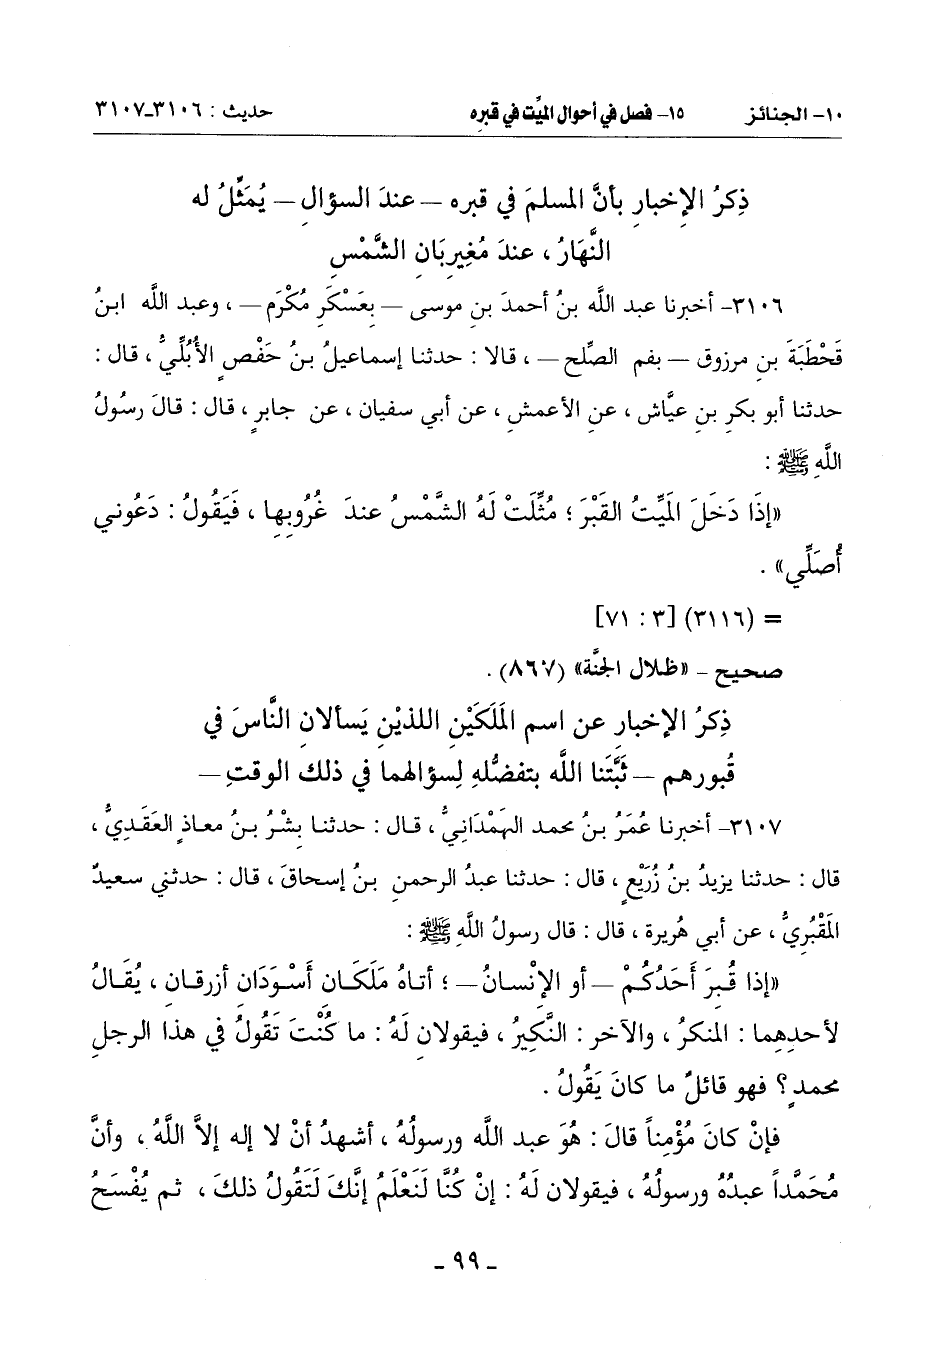 ١٠- الجنائز ١٥- فصل في أحوال الميِّت في قبره حديث : ٣١٠٦-٣١٠٧
ذِكرُ الإخبارِ بأنَّ المسلمَ في قبرِه – عندَ السؤالِ – يُمَثَّلُ له
النَّهَارُ ، عندَ مُغيرِبَانِ الشَّمْسِ
٣١٠٦- أخبرنا عبد اللَّه بنُ أحمدَ بنِ موسى – بِعَسْكَرِ مُكْرَمٍ – ، وعبد اللَّه ابنُ
قَحْطَبَةَ بنِ مرزوق – بفم الصِّلحِ – ، قالا : حدثنا إسماعيلُ بنُ حَفْصٍ الأُبُلِّيُّ ، قال :
حدثنا أبو بكرِ بنِ عيَّاش ، عنِ الأعمشِ ، عن أبي سفيان ، عن جابرٍ ، قال : قالَ رسُولُ
اللَّهِ ﷺ :
«إذَا دَخَلَ المَيِّتُ القَبْرَ ؛ مُثِّلَتْ لَهُ الشَّمْسُ عندَ غُرُوبِها ، فَيَقُولُ : دَعُوني
أُصَلِّي» .
= (٣١١٦) [٣ : ٧١]
صحيح - «ظلال الجنَّة» (٨٦٧) .
ذِكرُ الإخبارِ عن اسمِ المَلَكَيْنِ اللذيْنِ يَسألانِ النَّاسَ في
قُبورهم – ثَبَّتَنا اللَّه بتفضُّلهِ لِسؤالهما في ذلك الوقتِ –
٣١٠٧- أخبرنا عُمَرُ بنُ محمد الهَمْدَانيُّ ، قال : حدثنا بِشْرُ بنُ معاذٍ العَقَديُّ ،
قال : حدثنا يزيدُ بنُ زُرَيْعٍ ، قال : حدثنا عبدُ الرحمنِ بنُ إسحاقَ ، قال : حدثني سعيدٌ
المَقْبُريُّ ، عن أبي هُريرة ، قال : قال رسولُ اللَّهِ ﷺ :
«إذا قُبِرَ أَحَدُكُمْ – أو الإنْسانُ – ؛ أتاهُ مَلَكَانِ أَسْوَدَانِ أزرقانِ ، يُقَالُ
لأحدِهِما : المنكرُ ، والآخر : النَّكِيرُ ، فيقولانِ لَهُ : ما كُنْتَ تَقُولُ في هذا الرجلِ
محمدٍ ؟ فهو قائلٌ ما كانَ يَقُولُ .
فإنْ كانَ مُؤْمِناً قالَ : هُوَ عبد اللَّه ورسولُهُ ، أشهدُ أنْ لا إله إلاَّ اللَّهُ ، وأنَّ
مُحَمَّداً عبدُهُ ورسولُهُ ، فيقولان لَهُ : إنْ كُنَّا لَنَعْلَمُ إنَّكَ لَتَقُولُ ذلكَ ، ثم يُفْسَحُ
- ٩٩ -